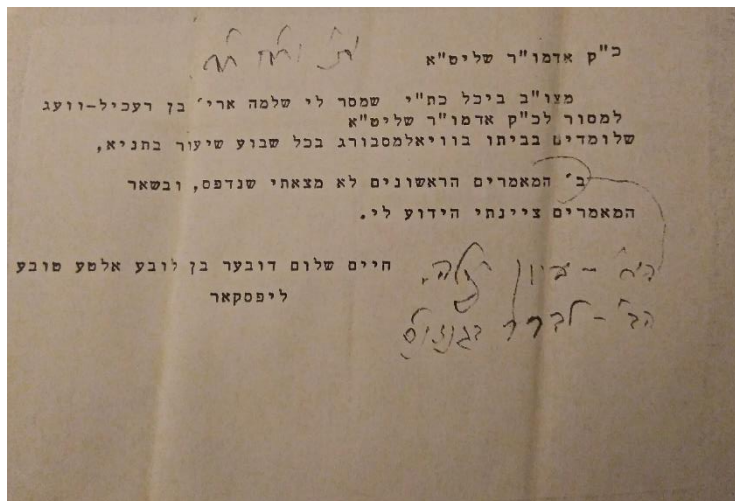 כ"ק אדמו"ר שליט"א
מצו"ב ביכל כת"י שמסר לי שלמה ארי' בן רעכיל-וועג
למסור לכ"ק אדמו"ר שליט"א
שלומדים בביתו בוויאלמסבורג בכל שבוע שיעור בתניא,
ב' המאמרים הראשונים לא מצאתי שנדפס, ובשאר
המאמרים ציינתי הידוע לי.
חיים שלום דובער בן לובע אלטע טובע
ליפסקאר
הא' - עיין
הב' - לברר